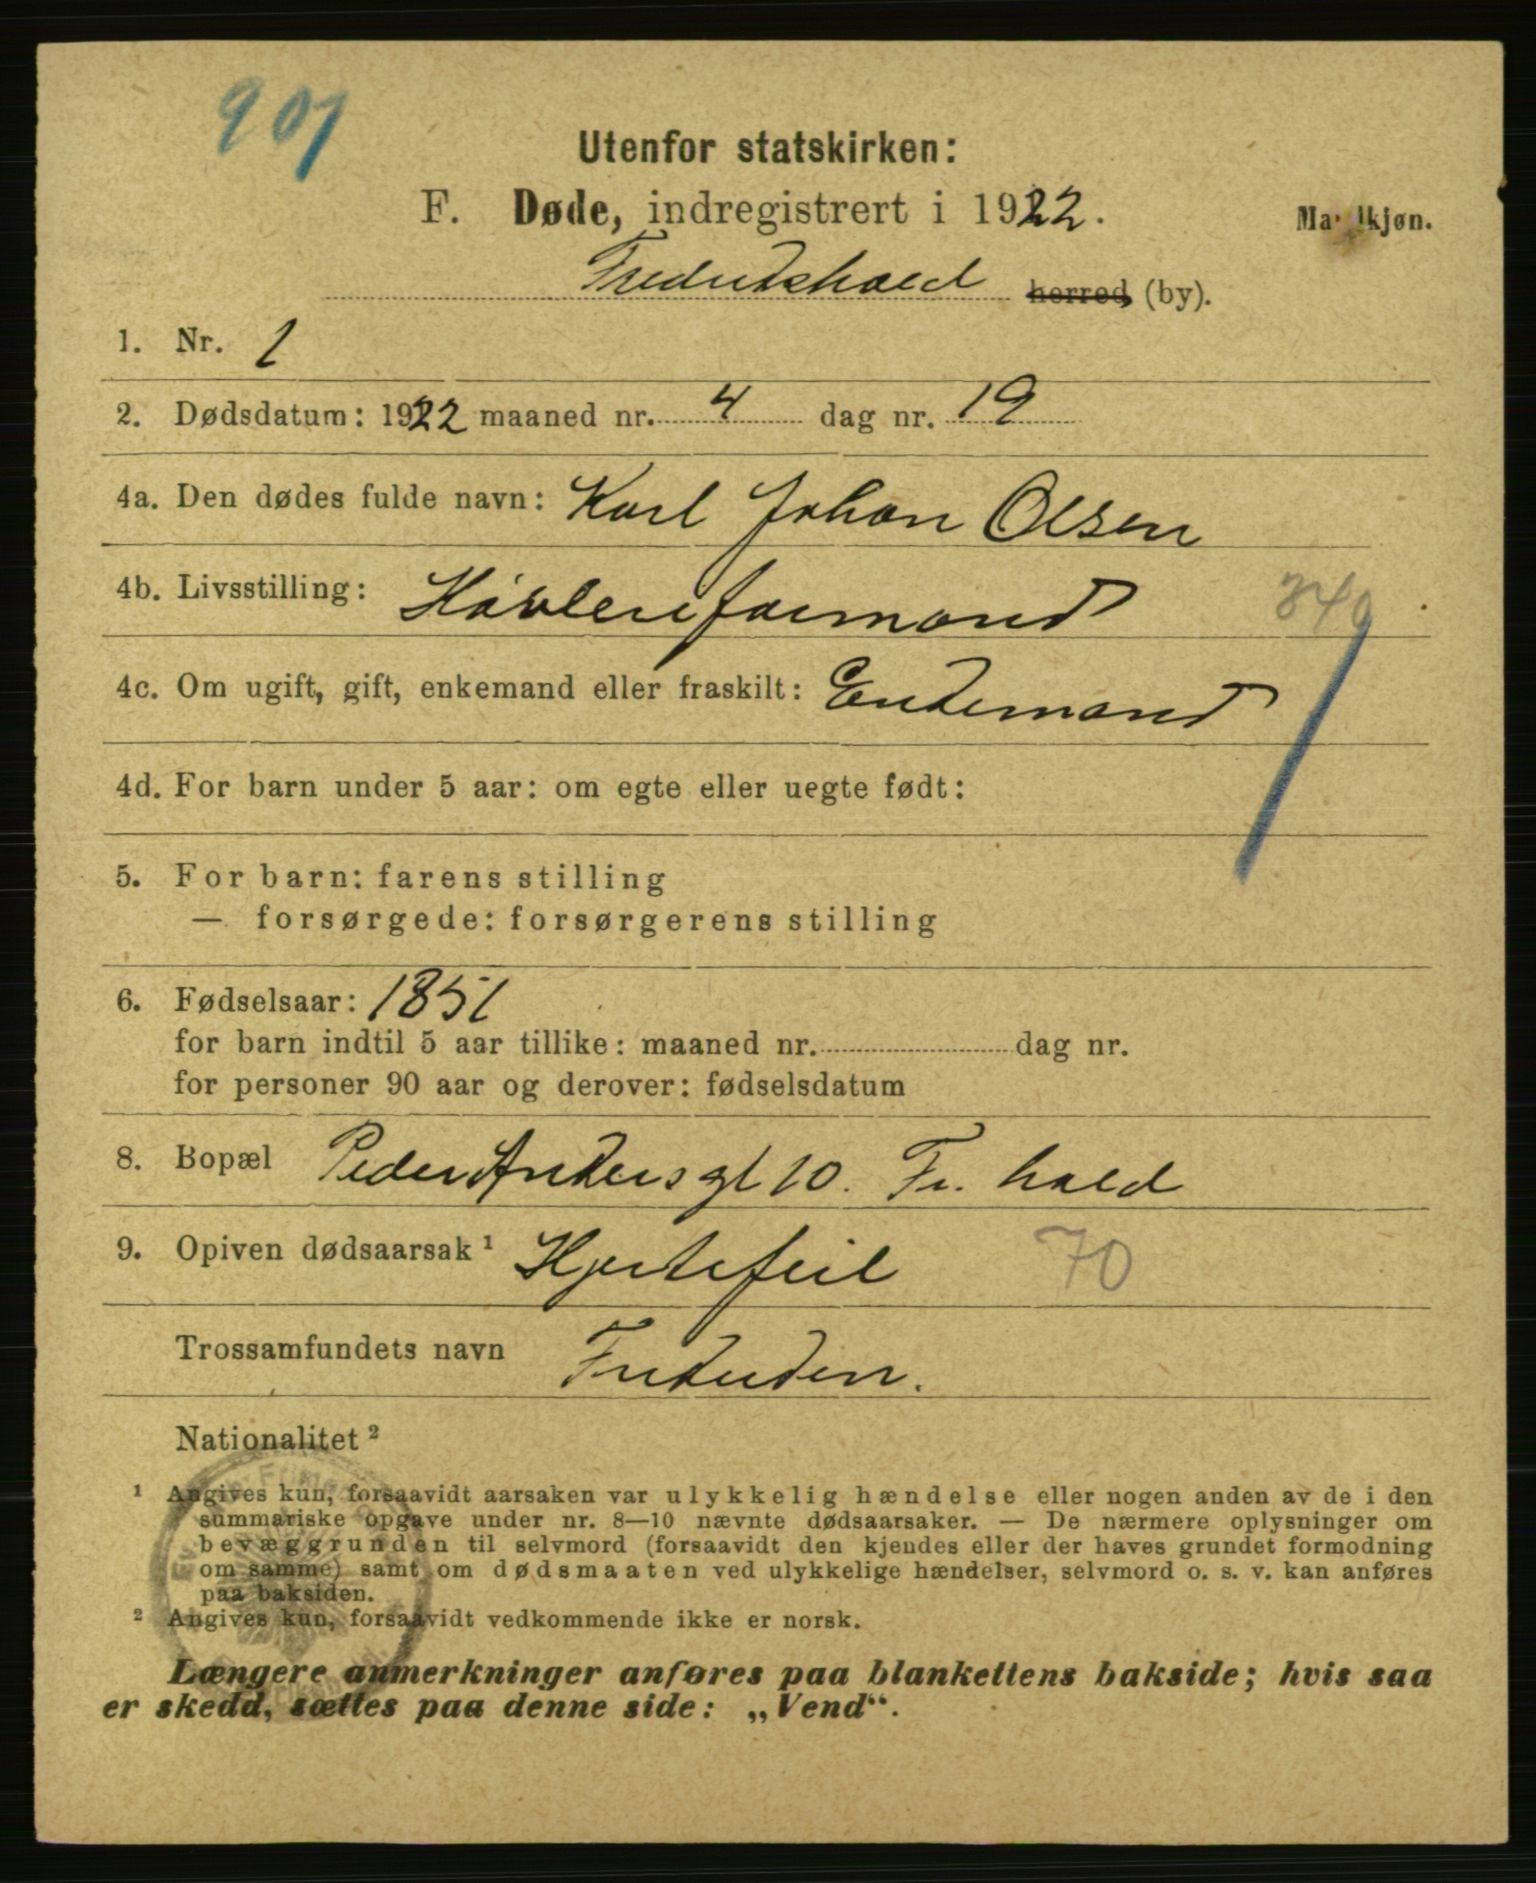 901
Utenfor statskirken:
F. Døde, indregistrert i 1922.
Mandkjøn.
Fredrikshald herred, (by).
1. Nr. 1
2. Dødsdatum: 1922 maaned nr. 4 dag nr. 19
4a. Den dødes fulde navn: Karl Johan Olsen
4b. Livsstilling: Høvleriformand
340
4c. Om ugift, gift, enkemand eller fraskilt: Enkemand
4d. For barn under 5 aar: om egte eller uegte født:
5. For barn: farens stilling
— forsørgede: forsørgerens stilling
6. Fødselsaar: 1851
for barn indtil 5 aar tillike: maaned nr. dag nr.
for personer 90 aar og derover: fødselsdatum
8. Bopæl Peder Ankers gt 10. Fr. hald
9. Opiven dødsaarsak ¹ Hjertefeil 70
Trossamfundets navn Frikirken.
Nationalitet ²
¹ Angives kun, forsaavidt aarsaken var ulykkelig hændelse eller nogen anden av de i den
summariske opgave under nr. 8—10 nævnte dødsaarsaker. — De nærmere oplysninger om
bevæggrunden til selvmord (forsaavidt den kjendes eller der haves grundet formodning
om samme) samt om dødsmaaten ved ulykkelige hændelser, selvmord o. s. v. kan anføres
paa baksiden.
² Angives kun, forsaavidt vedkommende ikke er norsk.
Længere anmerkninger anføres paa blankettens bakside; hvis saa
er skedd, sættes paa denne side: „Vend“.